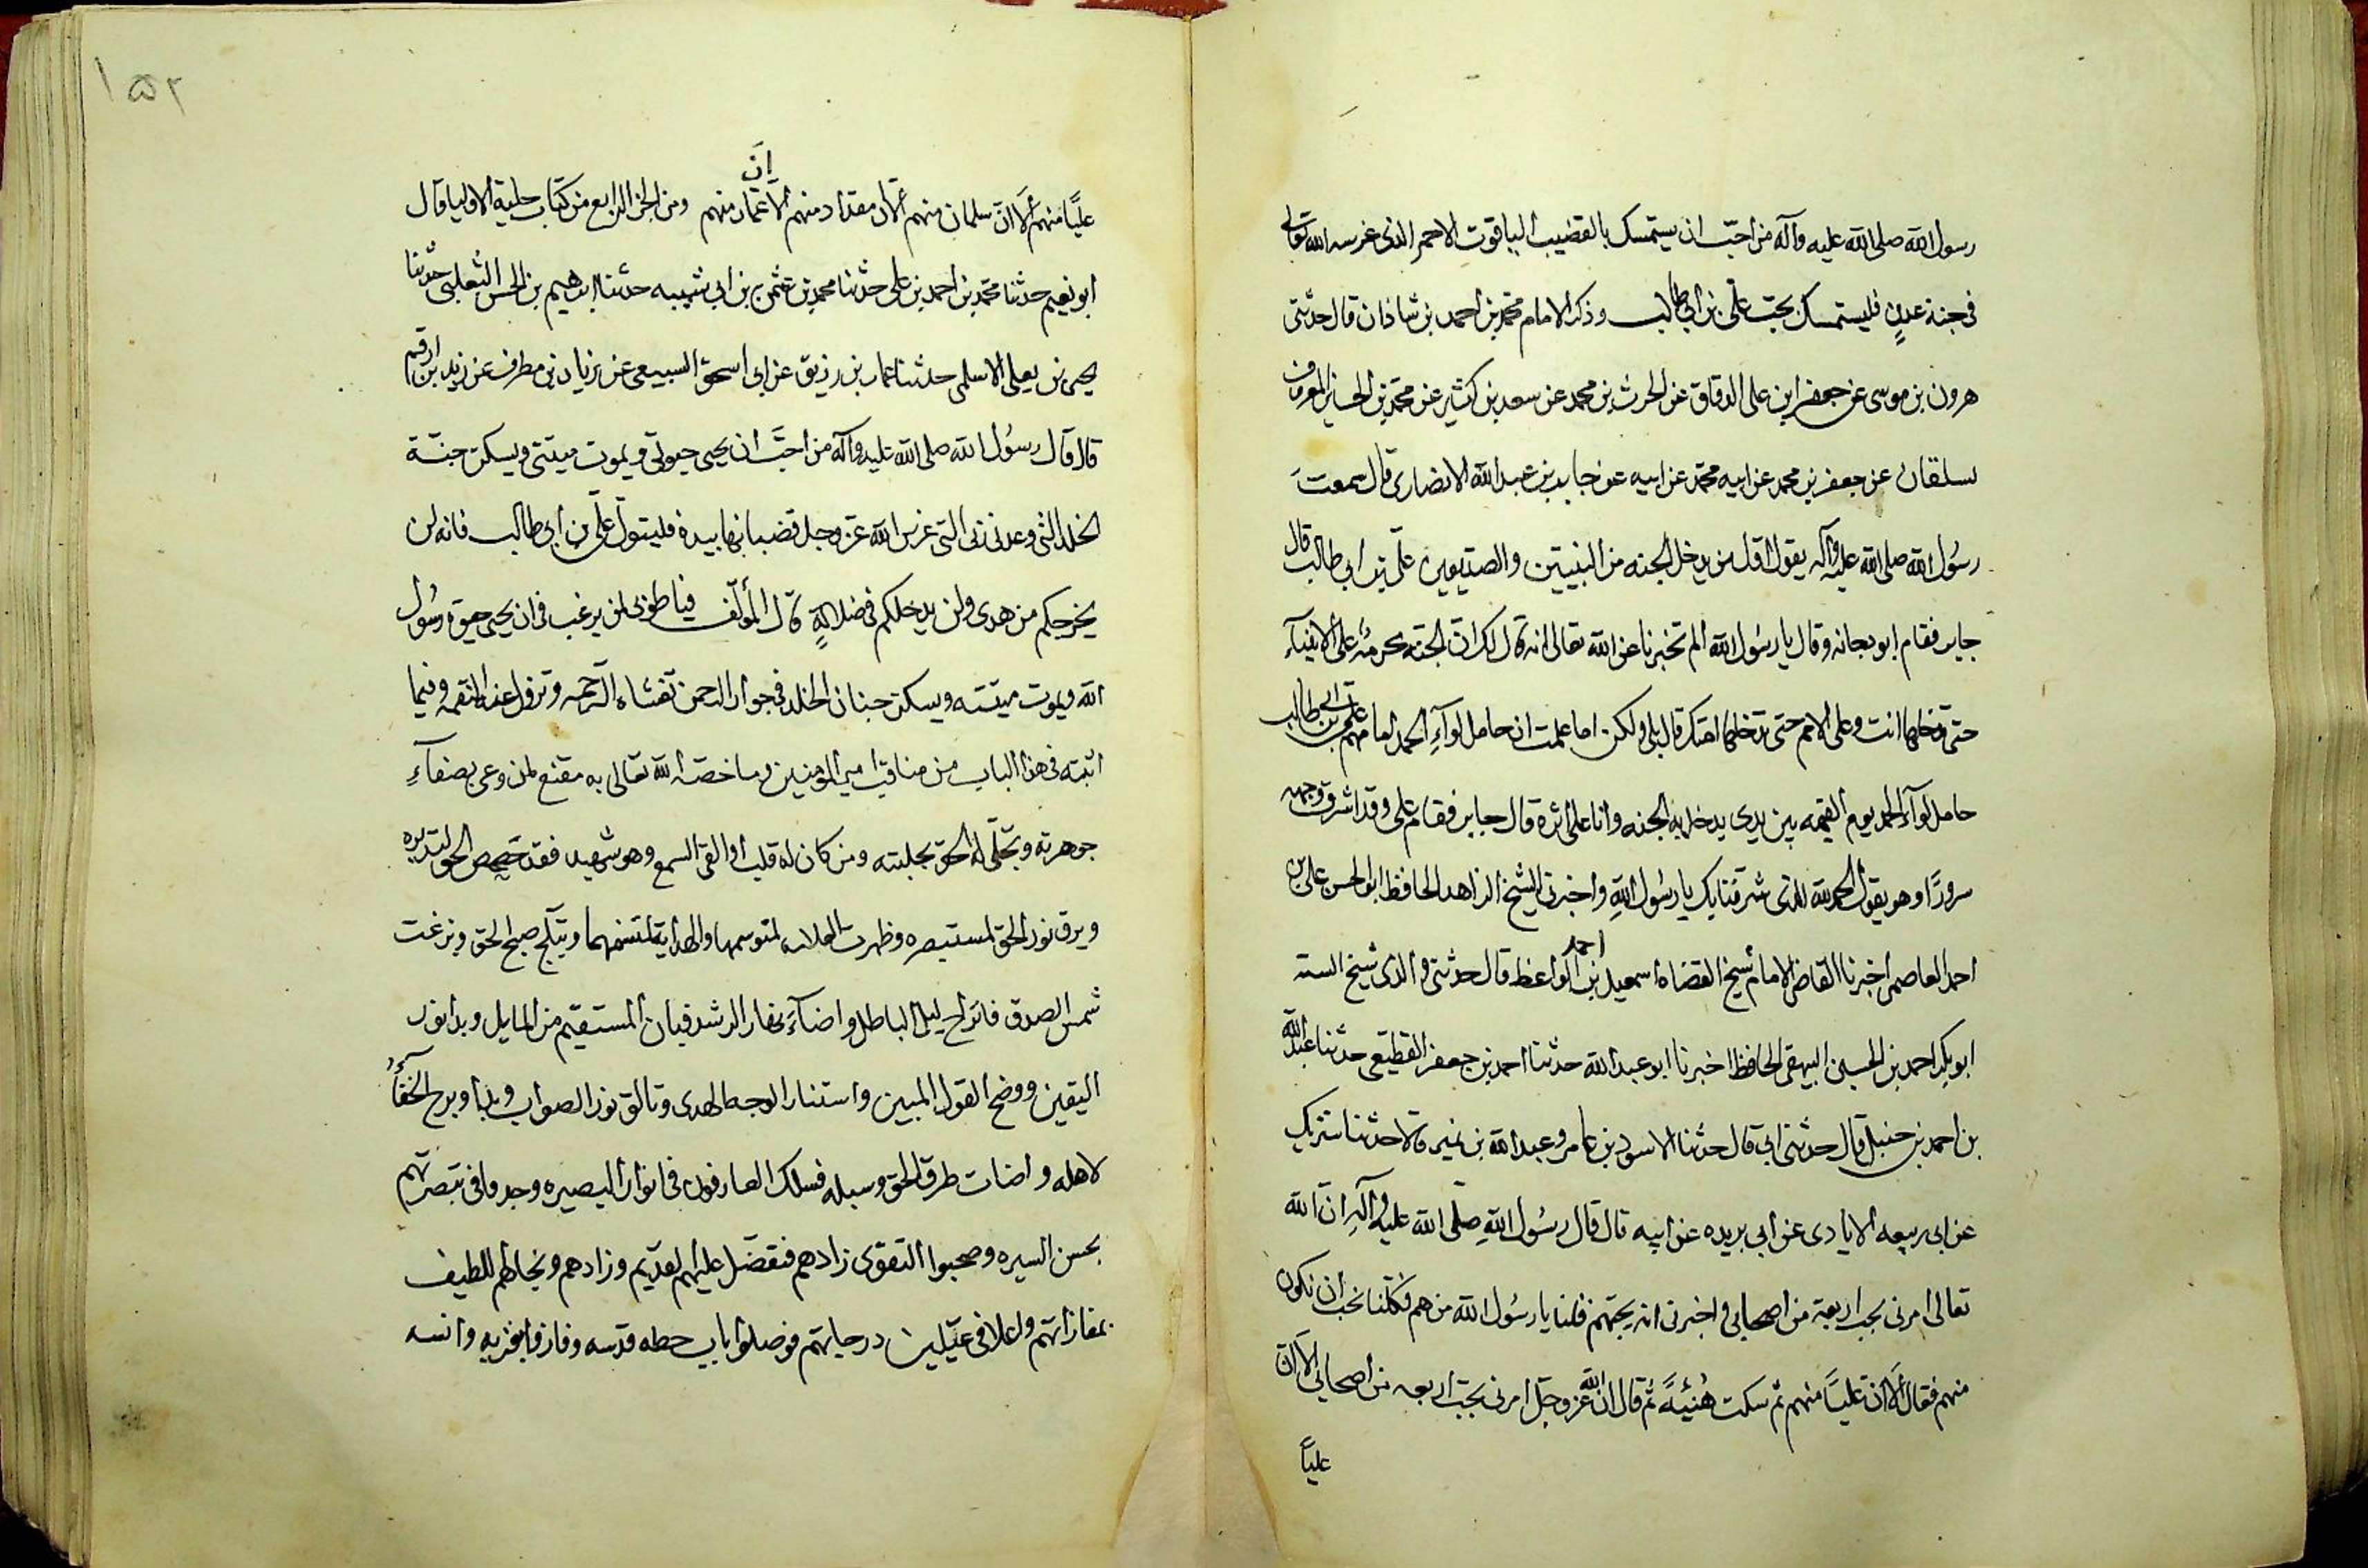 رسول الله صلى الله عليه وآله من احبّ ان يستمسك بالقضيب الياقوت الاحمر الذى غرسه الله تعالى
فى جنة عدنٍ فليستمسك بحبّ علّى بن ابى طالب وذكر الامام محمّد بن احمد بن شاذان قال حدثنى
هرون بن موسى عن جعفر ابن على الدقاق عن الحرث بن محمد عن سعد بن كثير عن محمّد بن الحسن المعروف
بسلقان عن جعفر بن محمد عن ابيه محمّد عن ابيه عن جابر بن عبد الله الانصارى قال سمعت
رسُول الله صلى الله عليه وآله يقول اوّل من يدخل الجنه من النبيّين والصديقين علّى بن ابى طالب قال
جابر فقام ابو دجانه وقال يا رسُول الله الم تخبرنا عن الله تعالى انه قال لك انّ الجنّة محرمة على الانبياءِ
حتى تدخلها انت وعلى الامم حتى تدخلها امّتك قال بلى ولكن اما علمت ان حامل لوآءِ الحمد امامهم علّى بن ابى طالب
حامل لوآء الحمد يوم القيمه بين يدى يدخل به الجنه وانا على اثره قال جابر فقام على وقد اشرق وجهه
سرورًا وهو يقول الحمد لله الذى شرفنا بك يا رسُول اللهِ واخبرنى الشيخ الزاهد الحافظ ابو الحسن على بن
احمد العاصمى اخبرنا القاضى الامام شيخ القضاة اسمعيل بن احمد الواعظ قال حدثنى والدى شيخ السنه
ابو بكر احمد بن الحسين البيهقى الحافظ اخبرنا ابو عبد الله حدثنا احمد بن جعفر القطيعى حدثنا عبد الله
بن احمد بن حنبل قال حدثنى ابى قال حدثنا الاسود بن عامر وعبد الله بن نمير قالا حدثنا شريك
عن ابى ربيعه الايادى عن ابى بريده عن ابيه قال قال رسُول اللهِ صلّى الله عليه وآلهِ انّ الله
تعالى امرنى بحب اربعة من اصحابى واخبرنى انه يحبّهم قلنا يا رسُول الله من هم فكلنا نحب ان نكون
منهم فقال ألا انّ عليّا منهم ثم سكت هُنيئةً ثم قال انّ الله عز وجلّ امرنى بحبّ اربعه من اصحابى الا انّ
عليّا
عليّا منهم ألا انّ سلمان منهم ألا انّ مقداد منهم ألا انّ عمّار منهم ومن الجزء الرابع من كتاب حلية الاوليا قال
ابو نعيم حدثنا محمّد بن احمد بن على حدثنا محمد بن عثمن بن ابى شيبه حدثنا ابراهيم بن الحسن الثعلبى حدثنا
يحيى بن يعلى الاسلمى حدثنا عمار بن رزيق عن ابى اسحق السبيعى عن زياد بن مطرف عن زيد بن ارقم
قال قال رسُول الله صلى الله عليه وآله من احبَّ ان يحيى حيوتى ويموت ميتتى ويسكن جنّة
الخلد التى وعدنى ربى التى غرس الله عزّ وجل قضبانها بيده فليتولّ علّى بن ابى طالب فانه لن
يخرجكم من هدى ولن يدخلكم فى ضلالةٍ قال المؤلّف فيا طوبى لمن يرغب فى ان يحيى حيوة رسُول
الله ويموت ميتته ويسكن جنان الخلد فى جوار الرحمن تغشاه الرّحمه وتزول عنه النقمه وفيما
اثبته فى هذا الباب من مناقب امير المؤمنين وما خصّه الله تعالى به مقنع لمن وعى بصفآءِ
جوهرته وتجلّى له الحق بجليته ومن كان له قلب او القى السمع وهو شهيد فقد حَصحص الحق لمتدبره
وبرق نور الحق لمستبصره وظهرت العلامه لمتوسمها والهداية لمتسنمها وتبلّج صبح الحق وبزغت
شمس الصدق فانزاح ليل الباطل واضآءَ نهار الرشد فبان المستقيم من المايل وبدا نور
اليقين ووضح القول المبين واستنار الوجه الهدى وتالق نور الصواب وبدا وبرح الخفآءُ
لاهله واضات طرق الحق وسبله فسلك العارفون فى انوار البصيره وجدوا فى تبصرتهم
بحسن السيره وصحبوا التقوى زادهم فتفضّل عليهم لقديم وزادهم ونجاهم اللطيف
بمفازاتهم واعلا فى علّيين درجاتهم فوصلوا باب حطه قدسه وفازوا بقربه وانسه
١٥٢